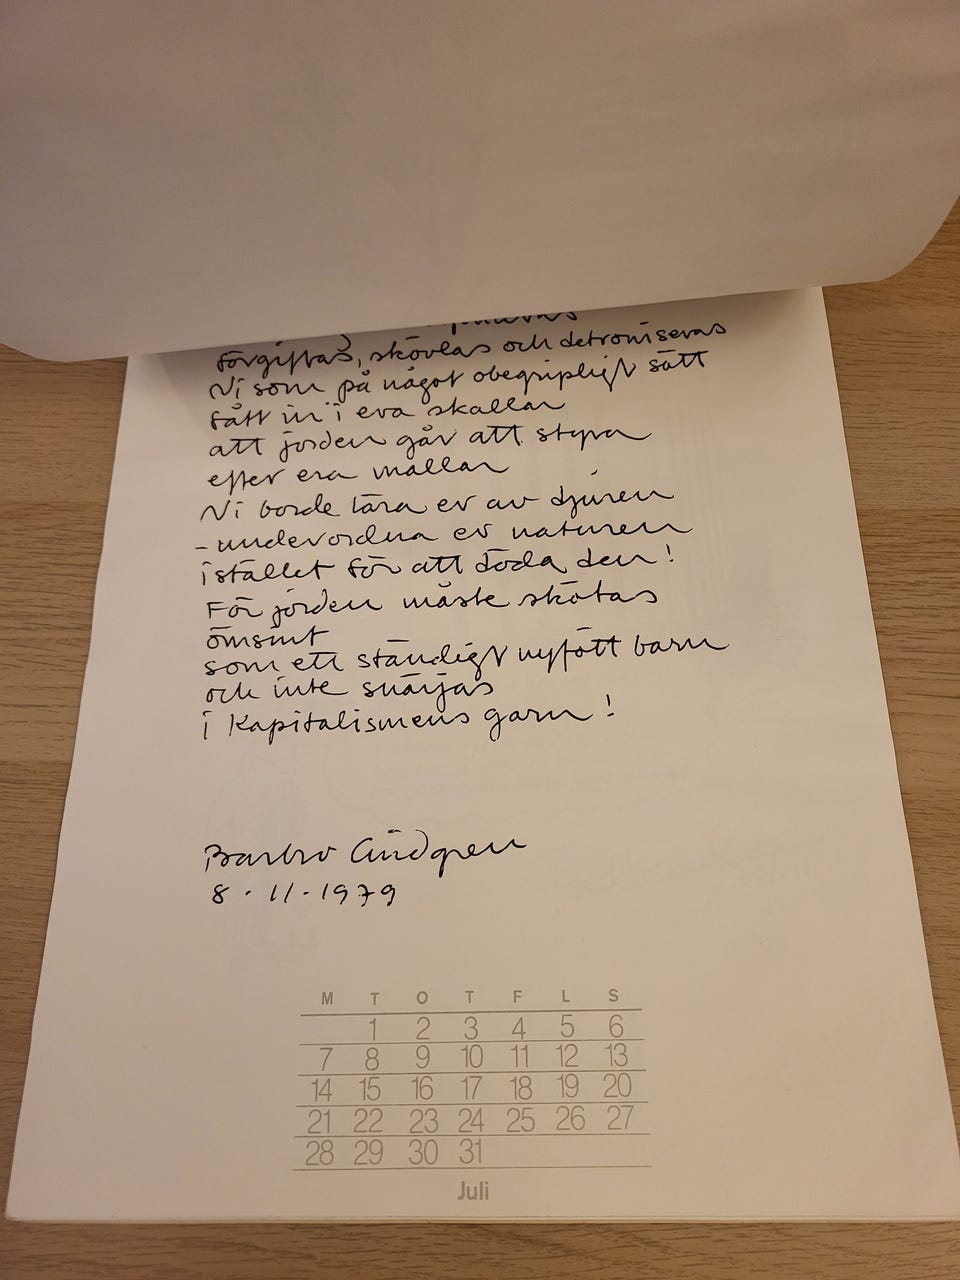 förgiftas, skövlas och detroniseras
Ni som på något obegripligt sätt
fått in i era skallar
att jorden går att styra
efter era mallar
Ni borde lära er av djuren
- underordna er naturen
istället för att döda den!
För jorden måste skötas
ömsint
som ett ständigt nyfött barn
och inte snärjas
i Kapitalismens garn!
Barbro Lindgren
8.11.1979
M T O T F L S
1 2 3 4 5 6
7 8 9 10 11 12 13
14 15 16 17 18 19 20
21 22 23 24 25 26 27
28 29 30 31
Juli